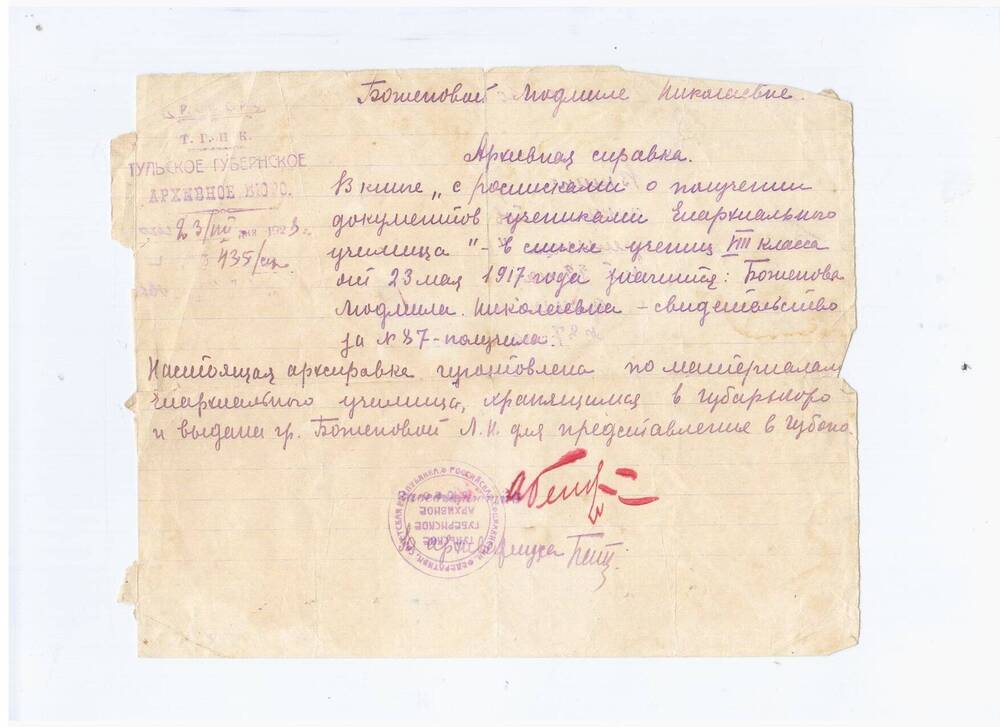 Боженовой Людмиле Николаевне.
Р.С.Ф.С.Р.
Т. Г. И. К.
ТУЛЬСКОЕ ГУБЕРНСКОЕ
АРХИВНОЕ БЮРО.
23/VIII дня 1923 г.
435/
Архивная справка.
В книге „с росписками о получении
документов учениками Епархиального
училища" - в списке учениц VIII класса
от 23 мая 1917 года значится: Боженова
Людмила Николаевна - свидетельство
за № 87 - получила.
Настоящая архсправка изготовлена по материалам
Епархиального училища, хранящимся в Губархбюро
и выдана гр. Боженовой Л. Н. для представление в Губоно.
Заведывающий
Архивариус
РОССИЙСКАЯ СОЦИАЛИСТИЧ. ФЕДЕРАТИВН. СОВЕТСКАЯ РЕСПУБЛИКА
ТУЛЬСКОЕ
ГУБЕРНСКОЕ
АРХИВНОЕ
БЮРО